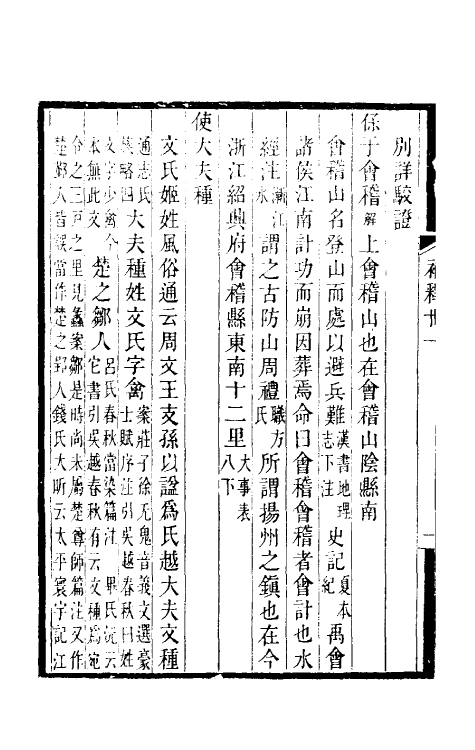 別詳駮證
保于會稽解上會稽山也在會稽山陰縣南
會稽山名登山而處以避兵難漢書地理志下注史記夏本紀禹會
諸侯江南計功而崩因葬焉命曰會稽會稽者會計也水
經注漸江水謂之古防山周禮職方氏所謂揚州之鎮也在今
浙江紹興府會稽縣東南十二里大事表八下
使大夫種
文氏姬姓風俗通云周文王支孫以諡爲氏越大夫文種
通志氏族略四大夫種姓文氏字禽案莊子徐无鬼音義文選豪士賦序注引吳越春秋曰姓
文字少禽今本無此文楚之鄒人呂氏春秋當染篇注畢氏沅云它書引吳越春秋有云文種爲宛
令之三戶之里見蠡案鄒是時尚未屬楚尊師篇注又作
楚鄞人皆誤當作楚之郢人錢氏大昕云太平寰宇記江
補釋卅一